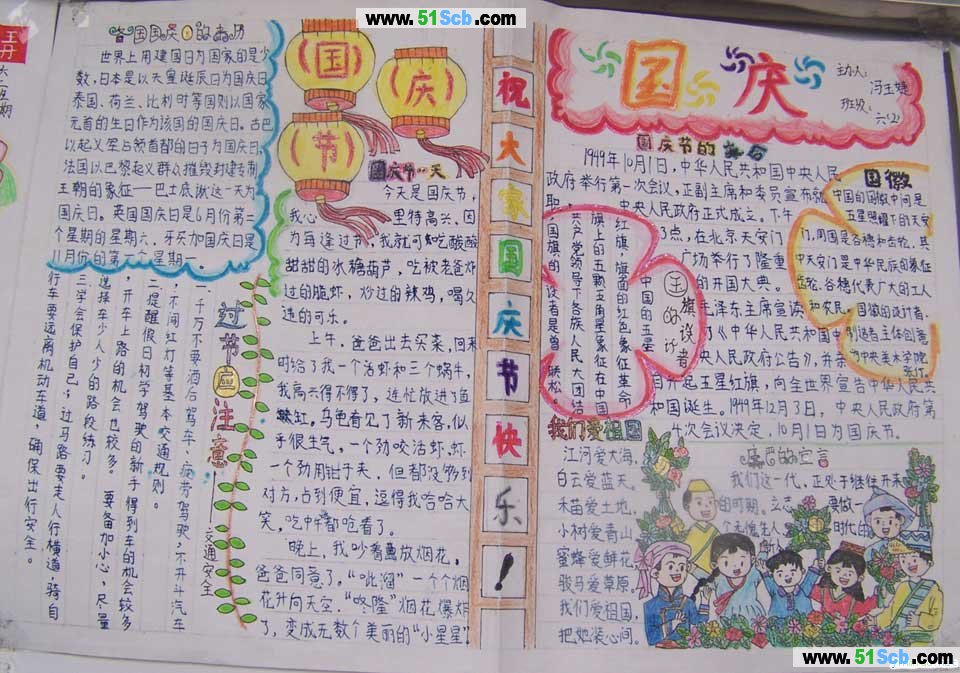 www.51Scb.com
各国国庆日的来历
世界上用建国日为国家的是少
数，日本是以天皇诞辰日为国庆日，
泰国、荷兰、比利时等国则以国家
元首的生日作为该国的国庆日。古巴
以起义军占领首都的日子为国庆日，
法国以巴黎起义群众摧毁封建专制
王朝的象征——巴士底狱这一天为
国庆日。英国国庆日是6月份第二
个星期的星期六，牙买加国庆日是
月份的第一个星期一。
过节应注意
交通安全
一千万不要酒后驾车、疲劳驾驶，不开斗汽车
，不闯红灯等基本交通规则。
二提醒假日初学驾驶的新手得到车的机会较多
，开车上路的机会也较多。要备加小心，尽量
选择车少人少的路段练习。
三学会保护自己，过马路要走人行横道，骑自
行车要远离机动车道，确保出行安全。
（国）
（庆）
（节）
国庆节一天
今天是国庆节，
我心里特高兴、因
为每逢过节，我就可吃酸酸
甜甜的冰糖葫芦，吃被老爸炸
过的脆虾，炒过的辣鸡，喝久
违的可乐。
上午，爸爸出去买菜，回来
时给了我一个活虾和三个蜗牛，
我高兴得不得了，连忙放进了鱼
缸。乌龟看见了新来客，似
乎很生气，一个劲咬活虾，虾
一个劲用钳子夹，但都没够到
对方，占到便宜，逗得我哈哈大
笑，吃中午都呛着了。
晚上，我吵着要放烟花，
爸爸同意了。“呲溜”一个个烟
花升向天空，“咚隆”烟花爆炸
了，变成无数个美丽的“小星星”
祝大家国庆节快乐！
国庆
主办人：冯玉婕
班级：六（2）
国庆节的
1949年10月1日，中华人民共和国中央人民
政府举行第一次会议，正副主席和委员宣布就
职，中央人民政府正式成立。下午
3点，在北京天安门
广场举行了隆重
的开国大典。
毛泽东主席宣读
了《中华人民共和国中
央人民政府公告》，并亲
自升起五星红旗，向全世界宣告中华人民共
和国诞生。1949年12月3日，中央人民政府第
4次会议决定，10月1日为国庆节。
国旗的设计者
中国的五星
红旗，旗面的红色象征革命，
旗上的五颗五角星象征在中国
共产党领导下各族人民大团结
国旗的设计者是曾联松。
国徽
中国的国徽中间是
五星照耀下的天安
门，周围是谷穗和齿轮，其
中天安门是中华民族的象征
齿轮、谷穗代表广大的工人
和农民。国徽的设计者、
创造者主体创意
为中央美术学院
张仃。
我们爱祖国
江河爱大海，
白云爱蓝天。
禾苗爱土地，
小树爱青山
蜜蜂爱鲜花
骏马爱草原，
我们爱祖国，
把她装心间。
的宣言
我们这一代，正处于继往开来
的时期。立志要做
时代的
www.51Scb.com